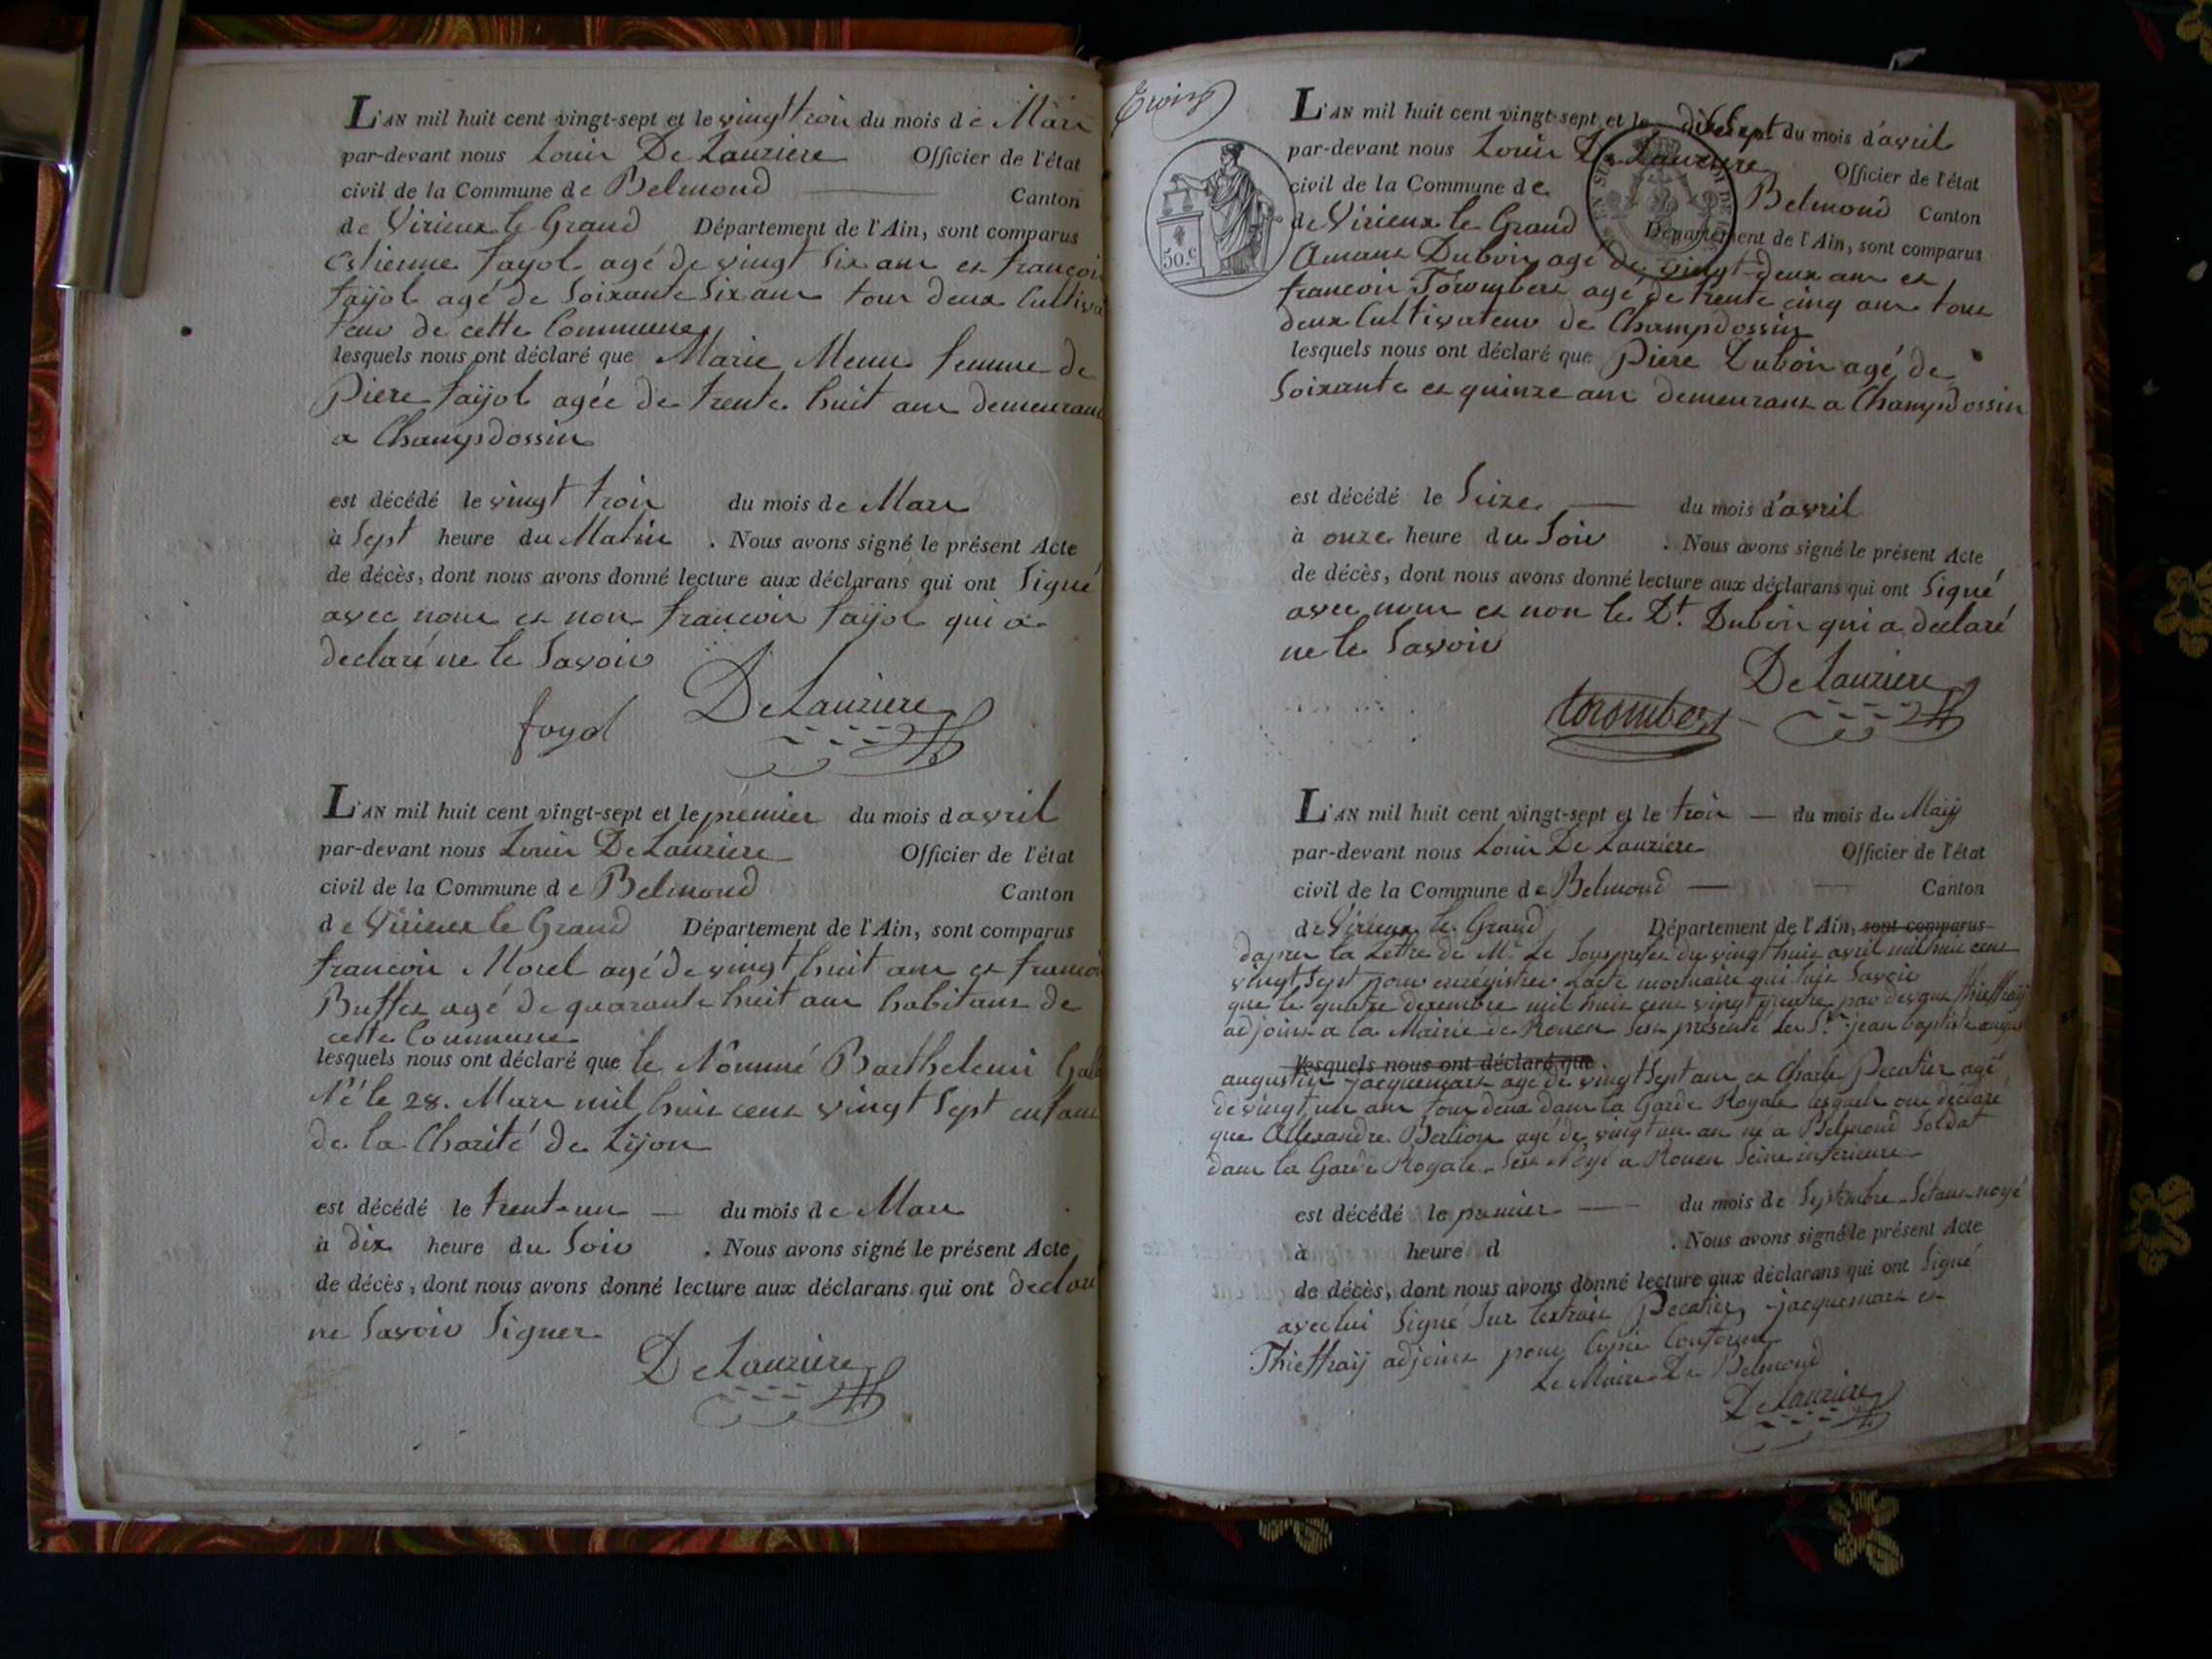 L'AN mil huit cent vingt-sept et le vingt trois du mois de Mars
par-devant nous Louis De Lauziere Officier de l'état
civil de la Commune de Belmond Canton
de Virieux le Grand Département de l'Ain, sont comparus
Estienne fayol agé de vingt six ans et françois
faÿol agé de Soixante Six ans tous deux Cultiva
teur de cette Commune
lesquels nous ont déclaré que Marie Menu femme de
Piere faijol agée de trente huit ans demeurant
a Champdossin
est décédé le vingt trois du mois de Mars
à Sept heure du Matin . Nous avons signé le présent Acte
de décès, dont nous avons donné lecture aux déclarans qui ont Signé
avec nous et non francois faijol qui a
declaré ne le Savoir
fayol DeLauziere
L'AN mil huit cent vingt-sept et le premier du mois d avril
par-devant nous Louis De Lauziere Officier de l'état
civil de la Commune de Belmond Canton
de Virieux le Grand Département de l'Ain, sont comparus
francois Morel agé de vingt huit ans et francois
Buffet agé de quarante huit ans habitans de
cette Commune
lesquels nous ont déclaré que le Nommé Barthelemi
Né le 28. Mars mil huit cent vingt Sept enfant
de la Charité de Lÿon
est décédé le trent-un du mois de Mars
à dix heure du Soir . Nous avons signé le présent Acte
de décès, dont nous avons donné lecture aux déclarans qui ont declaré
ne Savoir Signer
DeLauziere
L'AN mil huit cent vingt-sept et le dixsept du mois d'avril
par-devant nous Louis De Lauziere Officier de l'état
civil de la Commune de Belmond Canton
de Virieux le Grand Département de l'Ain, sont comparus
50.c
Amant Dubois agé de vingt-deux ans et
francois Torombert agé de trente cinq ans tous
deux Cultivateur de Champdossin
lesquels nous ont déclaré que Piere Dubois agé de
Soixante et quinze ans demeurant a Champdossin
est décédé le Seize du mois d'avril
à onze heure du Soir . Nous avons signé le présent Acte
de décès, dont nous avons donné lecture aux déclarans qui ont Signé
avec nous et non le Dt. Dubois qui a declaré
ne le Savoir
DeLauziere
torombert
L'AN mil huit cent vingt-sept et le trois du mois de Maÿ
par-devant nous Louis De Lauziere Officier de l'état
civil de la Commune de Belmond Canton
de Virieux le Grand Département de l'Ain, sont comparus
dapres la Lettre de Mr. Le Sousprefet du vingt huit avril mil huit cent
vingt Sept pour enregistrer l'acte mortuaire qui Suit Savoir
que le quatre decembre mil huit cent vingt quatre par devant Thieffraÿ
adjoint a la Mairie de Rouen Sest présenté les Srs. jean baptiste
lesquels nous ont déclaré que
augustin jacquemart agé de vingt Sept ans et Charle Pecatier agé
de vingt un ans tous deux dans la Garde Royale lesquels ont déclaré
que Allexandre Berlion agé de vingt un an né a Belmond Soldat
dans la Garde Royale Sest Noyé a Rouen Seine inferieure
est décédé le premier du mois de Septembre Sétant noyé
à heure d . Nous avons signé le présent Acte
de décès, dont nous avons donné lecture aux déclarans qui ont Signé
avec lui Signé Sur lextrait Pecatier, jacquemart et
Thieffraij adjoint pour Copie Conforme
Le Maire De Belmond
DeLauziere